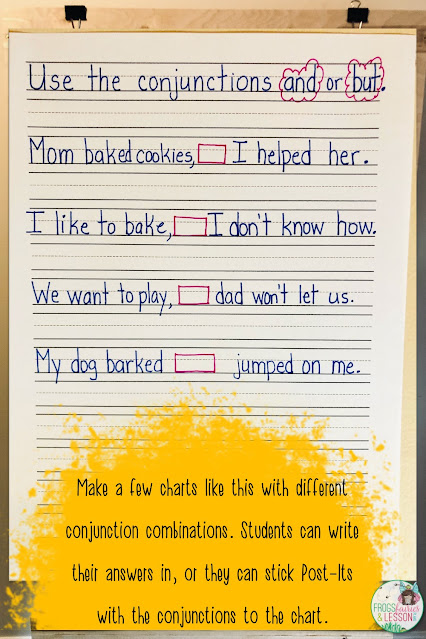 Use the conjunctions and or but.
Mom baked cookies, I helped her.
I like to bake, I don't know how.
We want to play, dad won't let us.
My dog barked jumped on me.
Make a few charts like this with different
conjunction combinations. Students can write
their answers in, or they can stick Post-Its
with the conjunctions to the chart.
FROGS
fairies
& LESSON